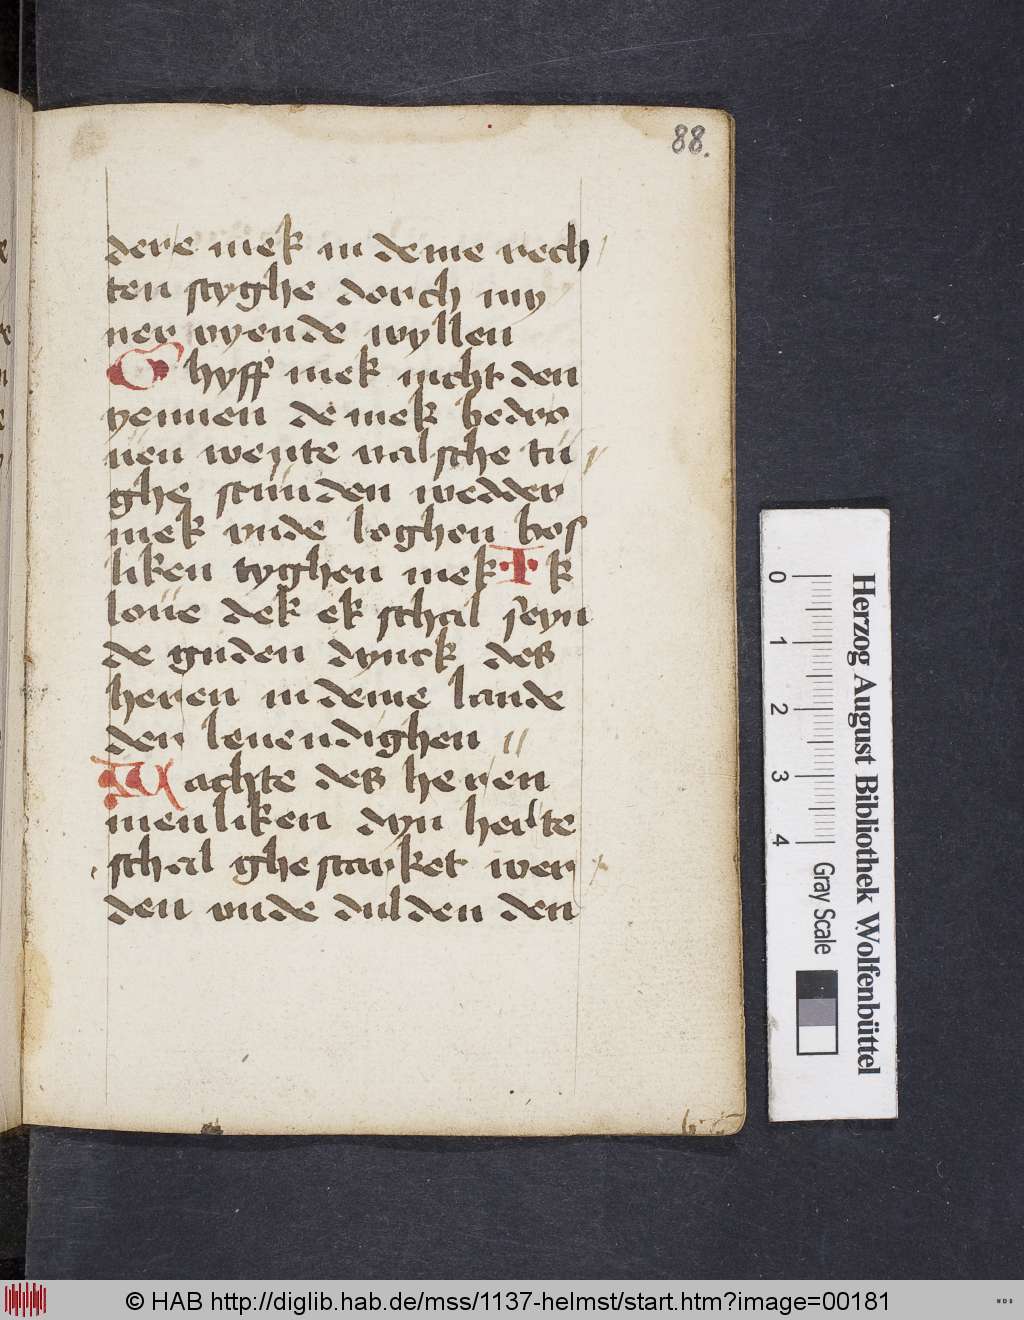 88.
dere mek in deme rech
ten styghe dorch my
ner vyende wyllen
Ghyff mek nicht den
yennen de mek bedro
uen wente valsche tü
ghe stunden wedder
mek vnde loghen bos
liken tyghen mek Ik
loue dek ek schal seyn
de guden dynck des
heren in deme lande
den leuendighen
Wachte des heren
menliken dyn herte
schal ghestarket wer
den vnde dulden den
0 1 2 3 4
Gray Scale
Herzog August Bibliothek Wolfenbüttel
© HAB http://diglib.hab.de/mss/1137-helmst/start.htm?image=00181